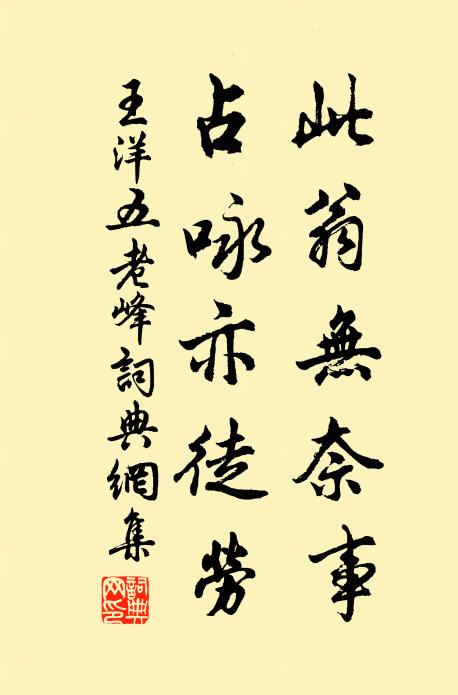 此翁無奈事
占咏亦徒勞
王洋五老峰詞典網集
詞典网印